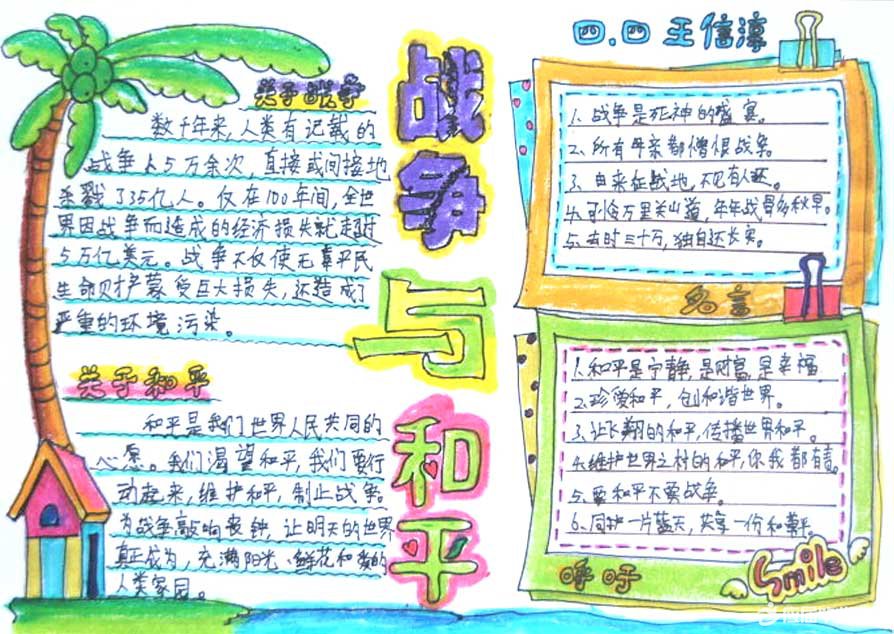 战争与和平
四.四 王信淳
关于战争
数千年来,人类有记载的
战争人5万余次,直接或间接地
杀戮了35亿人。仅在100年间,全世
界因战争而造成的经济损失就超过
5万亿美元。战争不仅使无辜平民
生命财产蒙受巨大损失,还造成了
严重的环境污染。
关于和平
和平是我们世界人民共同的
心愿。我们渴望和平,我们要行
动起来,维护和平,制止战争。
为战争敲响丧钟,让明天的世界
真正成为,充满阳光、鲜花和爱的
人类家园。
1、战争是死神的盛宴。
2、所有母亲都憎恨战争。
3、由来征战地,不见有人还。
4、可怜万里关山道,年年战骨多秋草。
5、去时三十万,独自还长安。
名言
1.和平是宁静,是财富,是幸福
2.珍爱和平,创和谐世界。
3.让飞翔的和平,传播世界和平。
4.维护世界之村的和平,你我都有责。
5、要和平不要战争。
6.同护一片蓝天,共享一份和平。
呼吁
Smile